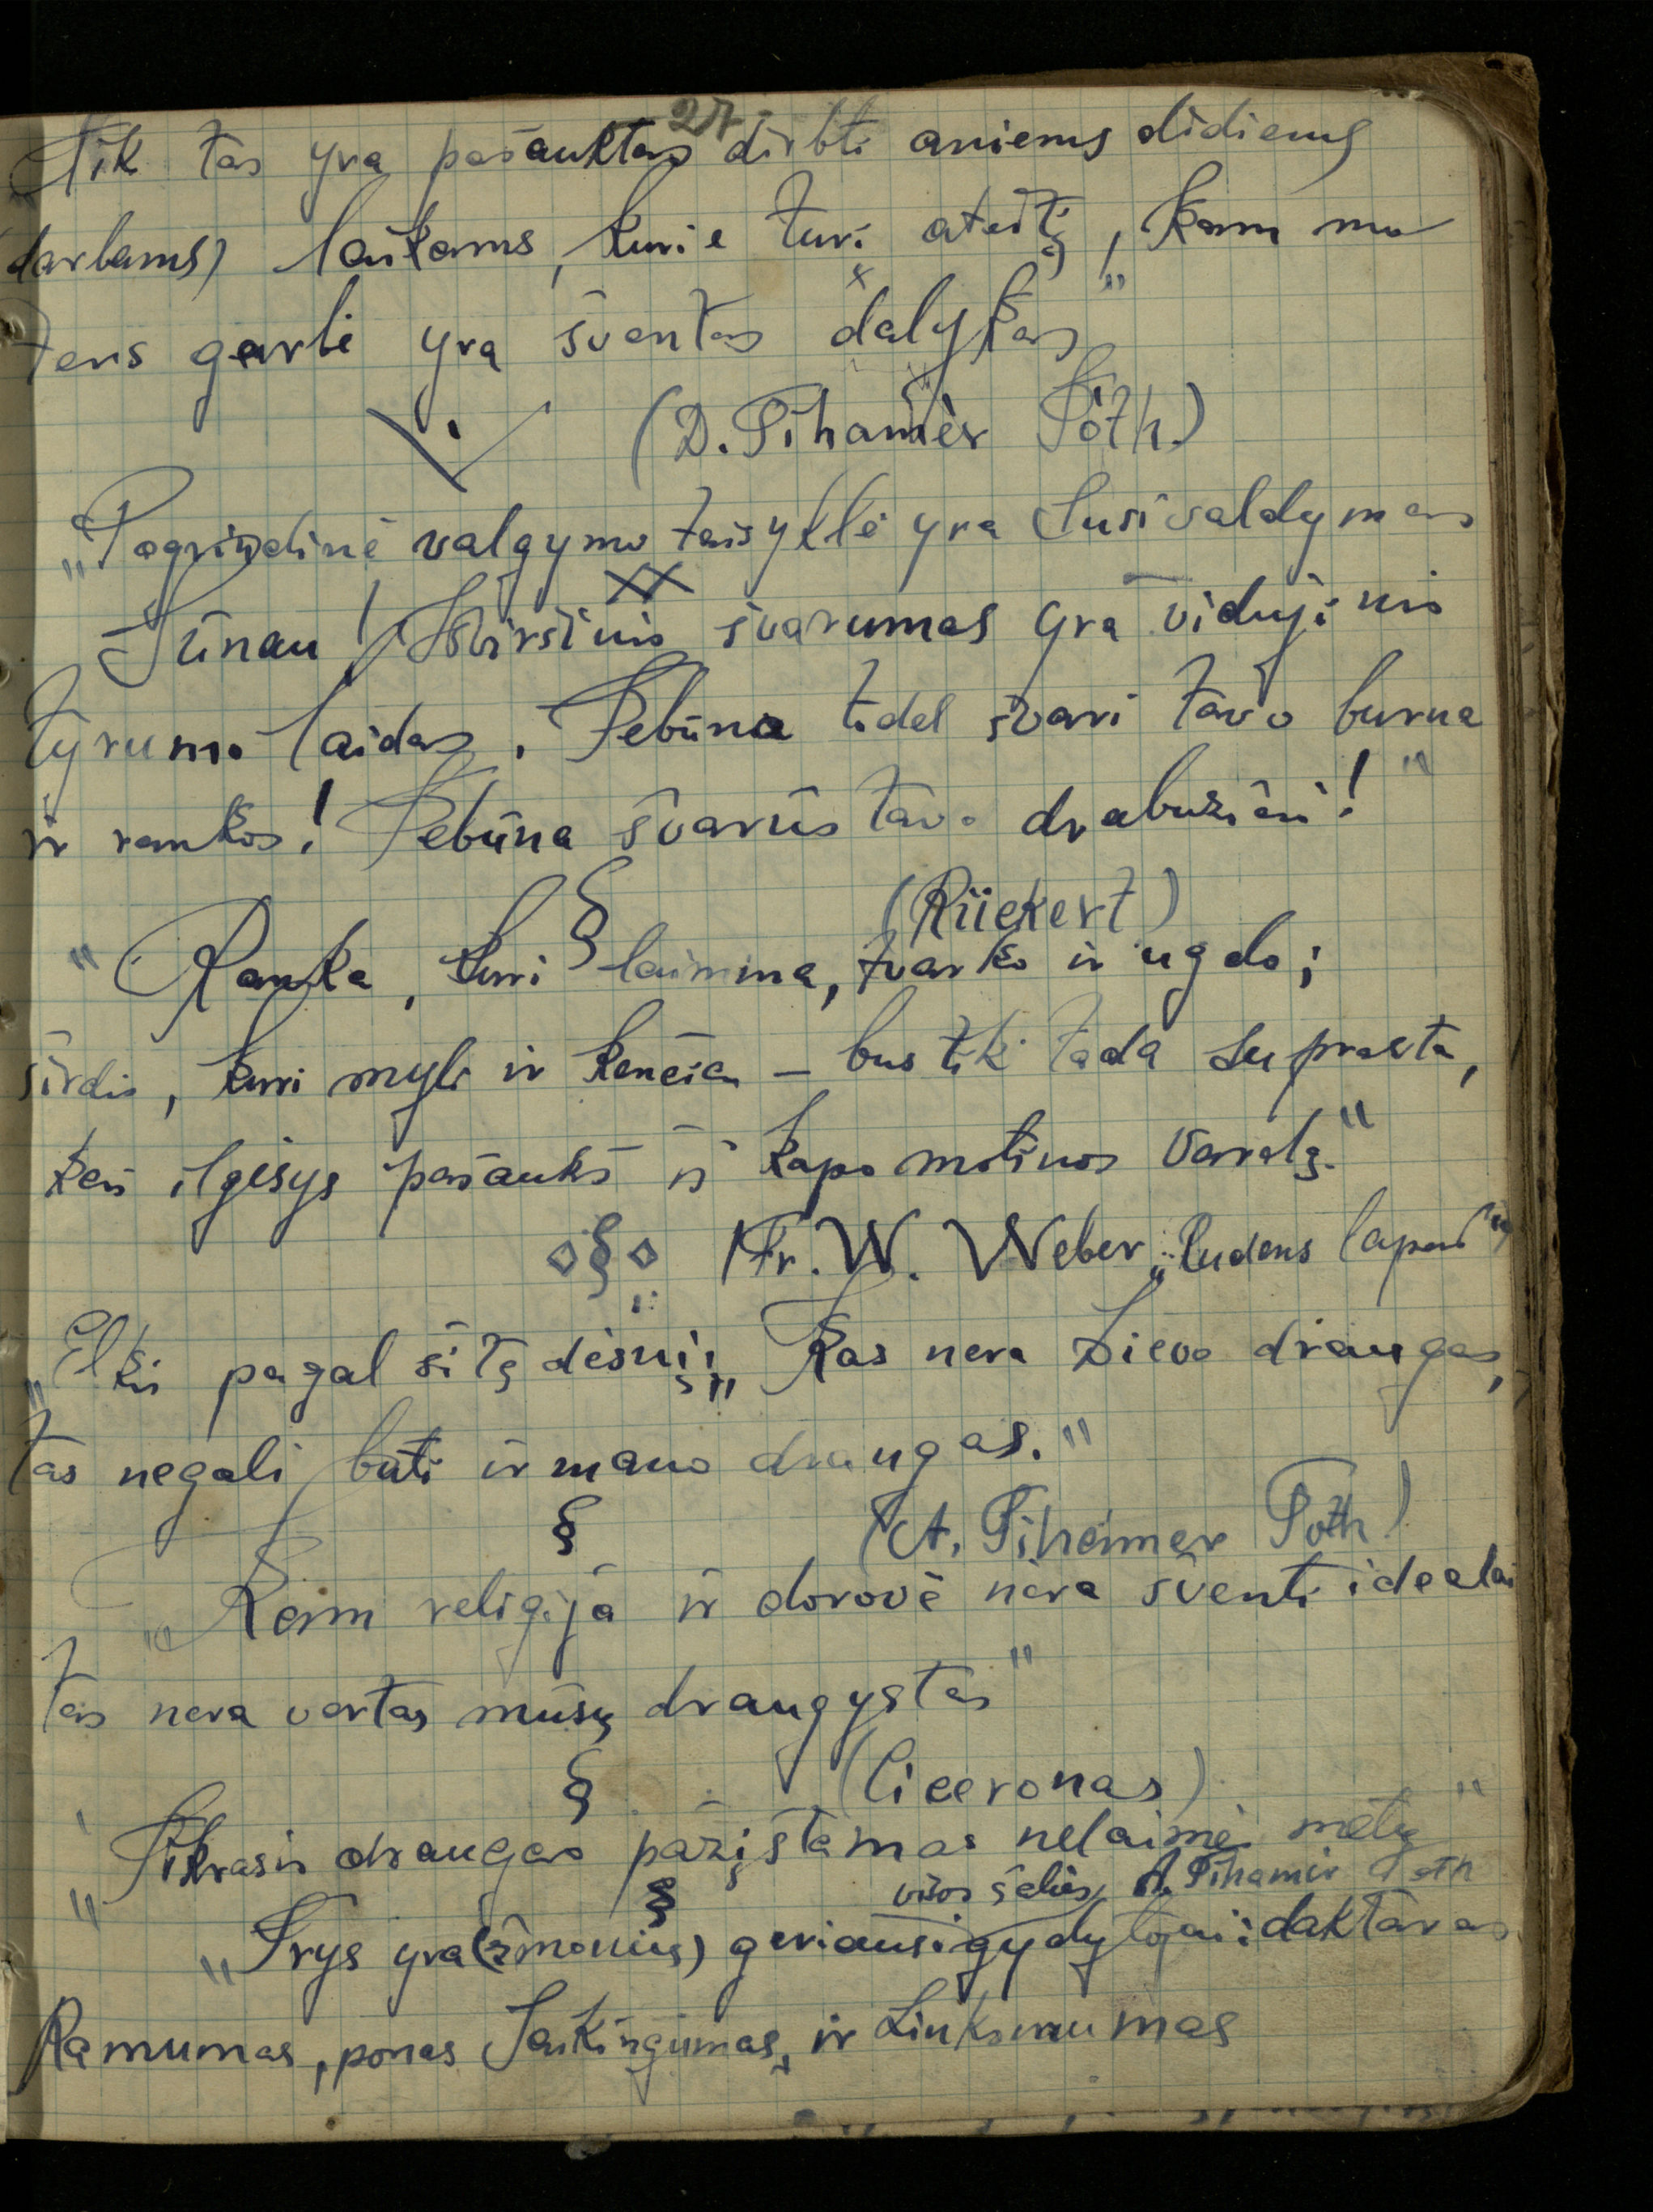 27
"Tik tas yra pašauktas dirbti aniems didiems
darbams) laikams, kurie turi ateitį, kam mo
ters garbė yra šventas dalykas"
x
(D. Tihamèr Tóth.)
"Pagrindinė valgymo taisyklė yra susivaldymas
XX
Sūnau! Išviršinis švarumas yra vidujinis
tyrumo laidas. Tebūna tidel švari tavo burna
ir rankos! Tebūna švarūs tavo drabužiai!"
(Rückert)
§
"Ranka, kuri laimina, tvarko ir ugdo;
širdis, kuri myli ir kenčia – bus tik tada suprasta,
kai ilgesys pašauks iš kapo motinos vardą."
◇§◇ (Fr. W. Weber "Rudens lapai")
"Elkis pagal šitą dėsnį: "Kas nera Dievo draugas,
tas negali būti ir mano draugas."
§ (A. Tihamer Toth)
"Kam religija ir dorovė nėra šventi idealai
tas nera vertas mūsų draugystės"
§ (Ciceronas)
"Tikrasis draugas pažįstamas nelaimės metu"
§ A. Tihamer Toth
visos šalies
"Trys yra (žmonių) geriausi gydytojai: daktaras
Ramumas, ponas Saikingumas, ir Linksmumas